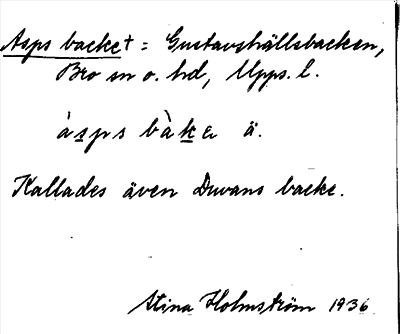 Asps backe† = Gustavshällsbacken,
Bro sn o. hd, Upps. l.
àsps bàkɛ ä.
Kallades även Duvans backe.
Stina Holmström 1936